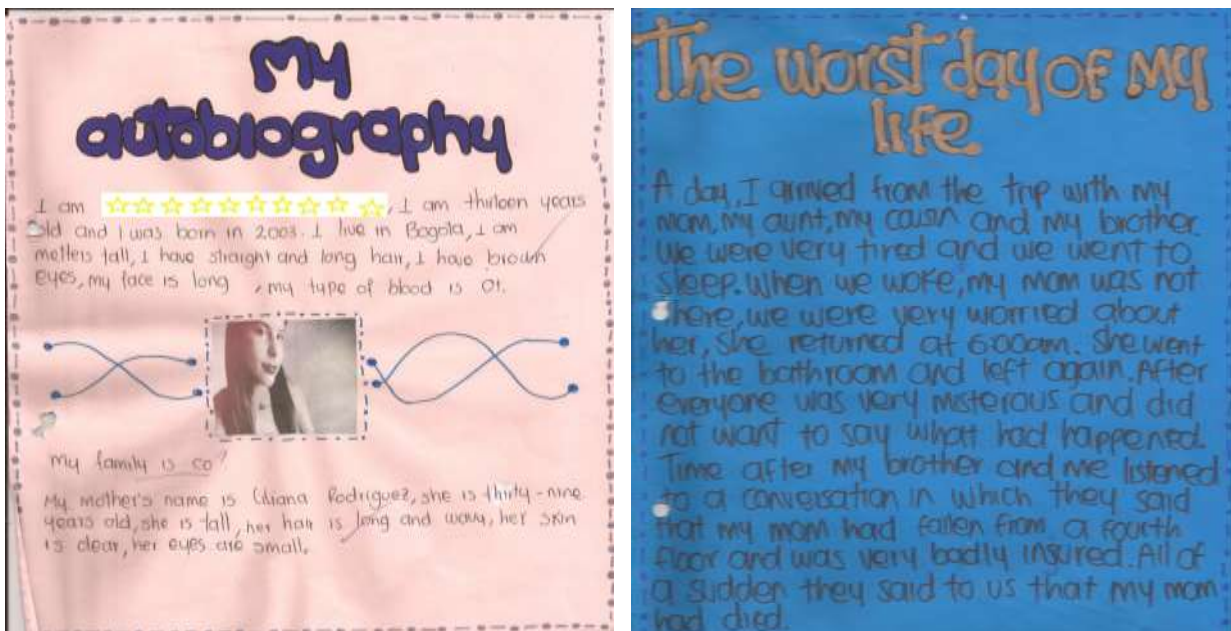 My
autobiography
I am , I am thirteen years
old and I was born in 2003. I live in Bogota, I am
metters tall, I have straight and long hair, I have brown
eyes, my face is long , my type of blood is O+.
My family is co
My mother's name is Liliana Rodriguez, she is thirty-nine
years old, she is tall, her hair is long and wavy, her skin
is clear, her eyes are small.
The worst day of My
life
A day, I arrived from the trip with my
mom, my aunt, my causin and my brother.
We were very tired and we went to
sleep. When we woke, my mom was not
there, we were very worried about
her, she returned at 6:00am. She went
to the bathroom and left again. After
everyone was very misterous and did
not want to say what had happened.
Time after my brother and me listened
to a conversation in which they said
that my mom had fallen from a fourth
floor and was very badly insured. All of
a sudden they said to us that my mom
had died.